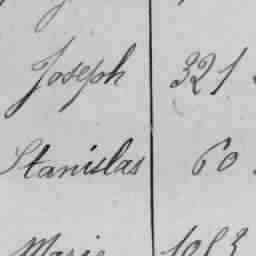 Joseph 321
Stanislas 60
Marie 1083